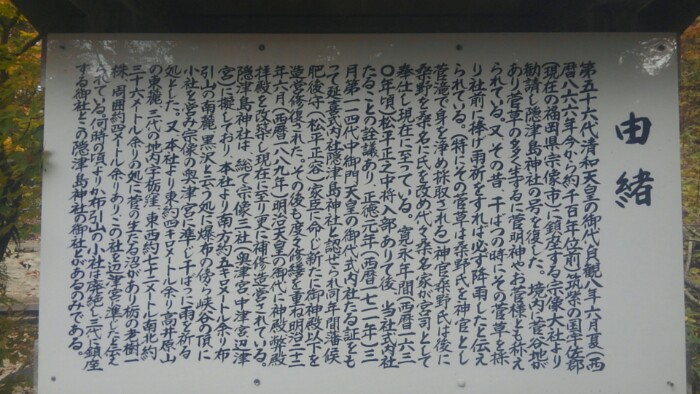 由緒
第五十六代清和天皇の御代貞觀八年六月夏(西
暦八六六年今から約千百年位前)筑紫の国宇佐郡
(現在の福岡県宗像市)に鎮座する宗像大社より
勧請し隠津島神社の号を復した。境内に菅谷地が
あり菅草の多く生ずるに菅明神やお菅様とも称え
られている。又その昔、干ばつの時にその菅草を採
り社前に捧げ雨祈をすれば必ず降雨したと伝え
られている。(特にその菅草は桑野氏を神官とし
菅滝で身を浄め採取される)神官桑野氏は後に
桑野を桑名に氏を改め代々桑名家が宮司として
奉仕し現在に至っている。寛永年間(西暦一六三
〇年頃)松平正之中将入部ありて後、当社式内社
たることの詮議あり、正徳元年(西暦一七一一年)三
月第一一四代中御門天皇の御代式内社たる証をも
って延喜式内社隠津島神社と認ぜられ同年間藩侯
肥後守(松平正容)家臣に命じ新たに御神殿以下を
造営修復された。その後も度々修繕を重ね明治二十二
年六月(西暦一八八九年)明治天皇の御代に神幣殿
拝殿を改築し現在に至り更に補修造営されている。
隠津島神社は、総て宗像三社(奥津宮、中津宮、辺津
宮)に擬しており、本社より南方約五キロメートル余り布
引山の南麓黒沢と云う処に爆布の傍ら峡谷の頂に
小社を営み宗像の奥津宮に準じ干ばつに雨を祈る
処とした。又本社より東約四キロメートル余り高井原山
の東麓三代の地内字栃窪、東西約七十二メートル南北約
三十六メートル余りの処に菅の生たる沼があり栃の老樹一
株、周囲約四メートル余りあり、この社を辺津宮に準じたと伝え
られている。何時の頃よりか布引山の小社は廃絶し三代に鎮座
する御社とこの隠津島神社の御社とがあるのみである。